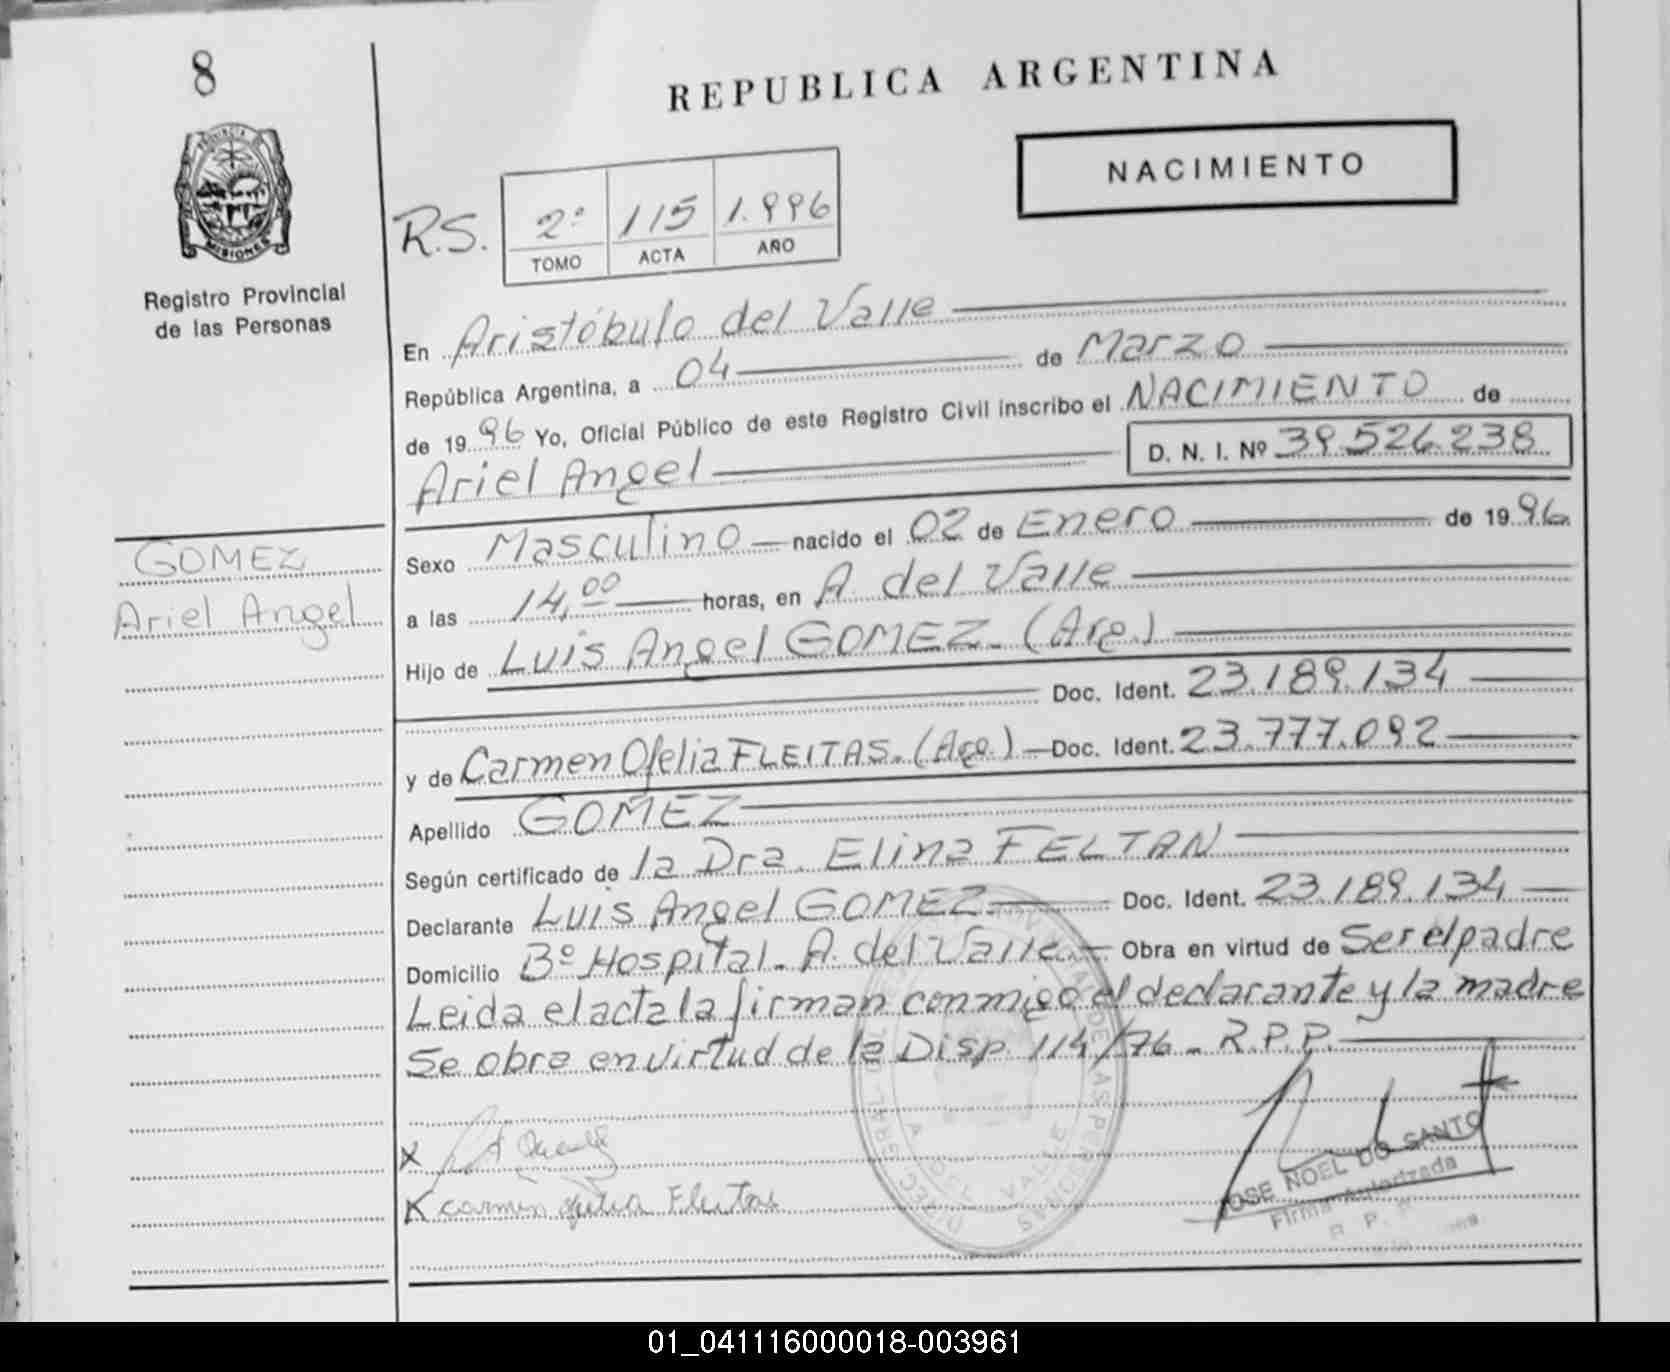 8
REPUBLICA ARGENTINA
NACIMIENTO
PROVINCIA
MISIONES
Registro Provincial
de las Personas
R.S. 2º 115 1.996
TOMO ACTA AÑO
En Aristóbulo del Valle
República Argentina, a 04 de Marzo
de 1996 Yo, Oficial Público de este Registro Civil inscribo el NACIMIENTO de
Ariel Angel D. N. I. Nº 39.526.238
GOMEZ
Ariel Angel
Sexo Masculino nacido el 02 de Enero de 1996
a las 14,00 horas, en A. del Valle
Hijo de Luis Angel GOMEZ. (Arg.)
Doc. Ident. 23.189.134
y de Carmen Ofelia FLEITAS. (Arg.) Doc. Ident. 23.777.092
Apellido GOMEZ
Según certificado de la Dra. Elina FELTAN
Declarante Luis Angel GOMEZ. Doc. Ident. 23.189.134
Domicilio Bº Hospital. A. del Valle. Obra en virtud de Ser el padre
Leida el acta la firman conmigo el declarante y la madre
Se obra en virtud de la Disp. 114/76 - R.P.P.
X
X Carmen Ofelia Fleitas
JOSE NOEL DO SANTO
Firma Autorizada
R. P.
01_041116000018-003961